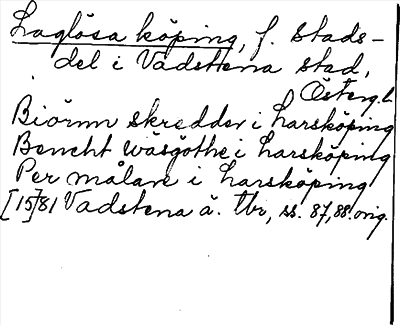 Laglösa köping, f. stads-
del i Vadstena stad,
Österg.l.
Biörnn skredder i Larsköping
Bencht wäsgöthe i Larsköping
Per målare i Larsköping
[15]81 Vadstena ä. tbr, ss. 87, 88. orig.